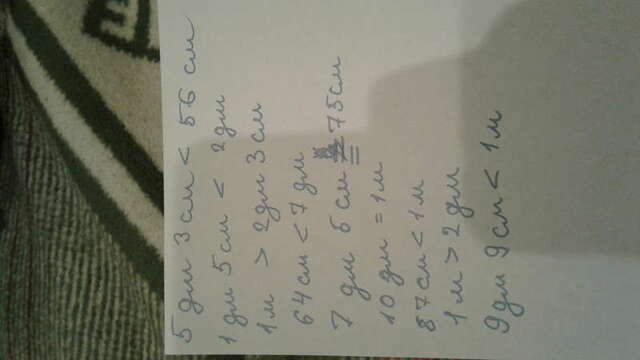 5 дм 3 см < 56 см
1 дм 5 см < 2 дм
1 м > 2 дм 3 см
64 см < 7 дм
7 дм 5 см = 75 см
10 дм = 1 м
87 см < 1 м
1 м > 2 дм
9 дм 9 см < 1 м